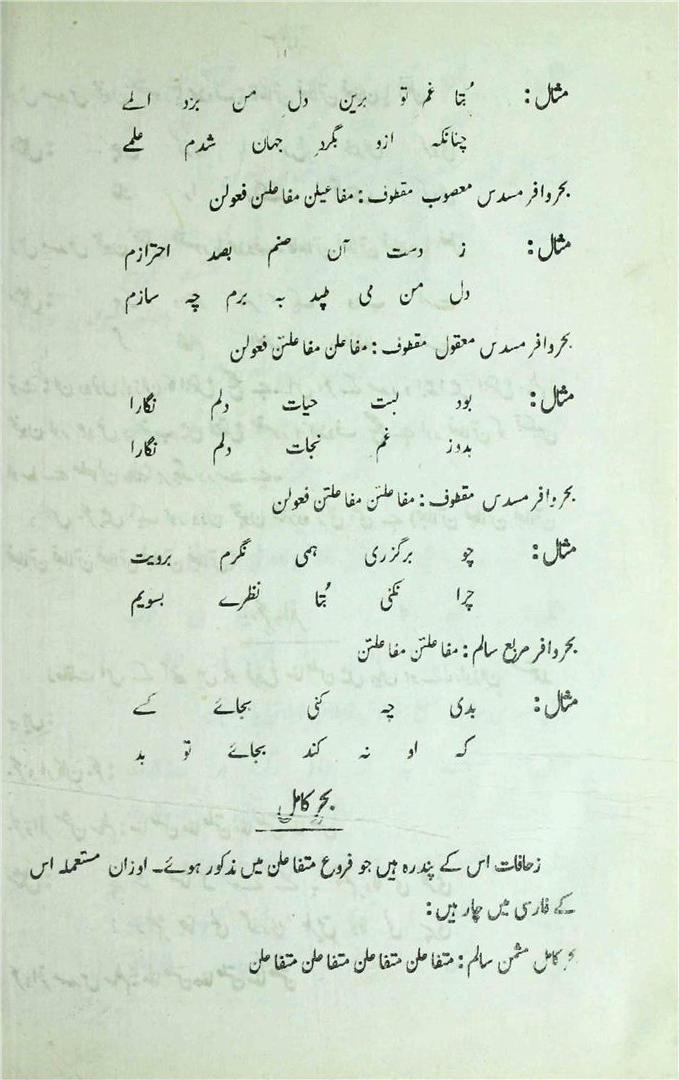 مثال: بُتا غم تو برین دل من بزد المے
چنانکہ ازو بگرد جہان شدم علمے
بحر وافر مسدس معصوب مقطوف: مفاعیلن مفاعلتن فعولن
مثال: ز دست آن صنم بصد احترازم
دل من می طپد بہ برم چہ سازم
بحر وافر مسدس معقول مقطوف: مفاعلن مفاعلتن فعولن
مثال: بود لبت حیات دلم نگارا
بدوز غم نجات دلم نگارا
بحر وافر مسدس مقطوف: مفاعلتن مفاعلتن فعولن
مثال: چو برگزری ہمی نگرم برویت
چرا نکنی بُتا نظرے بسویم
بحر وافر مربع سالم: مفاعلتن مفاعلتن
مثال: بدی چہ کنی بجائے کے
کہ او نہ کند بجائے تو بد
بحر کامل
زحافات اس کے پندرہ ہیں جو فروع متفاعلن میں مذکور ہوئے۔ اوزان مستعملہ اس
کے فارسی میں چار ہیں:
بحر کامل مثمن سالم: متفاعلن متفاعلن متفاعلن متفاعلن